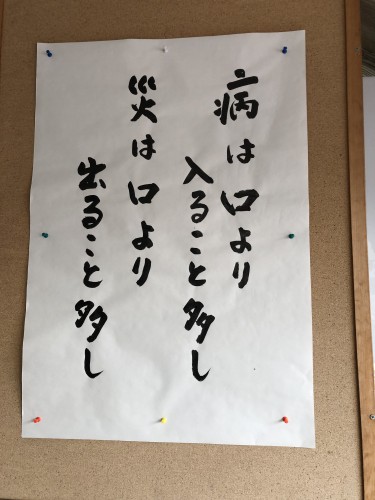 病は口より
入ること多し
災は口より
出ること多し